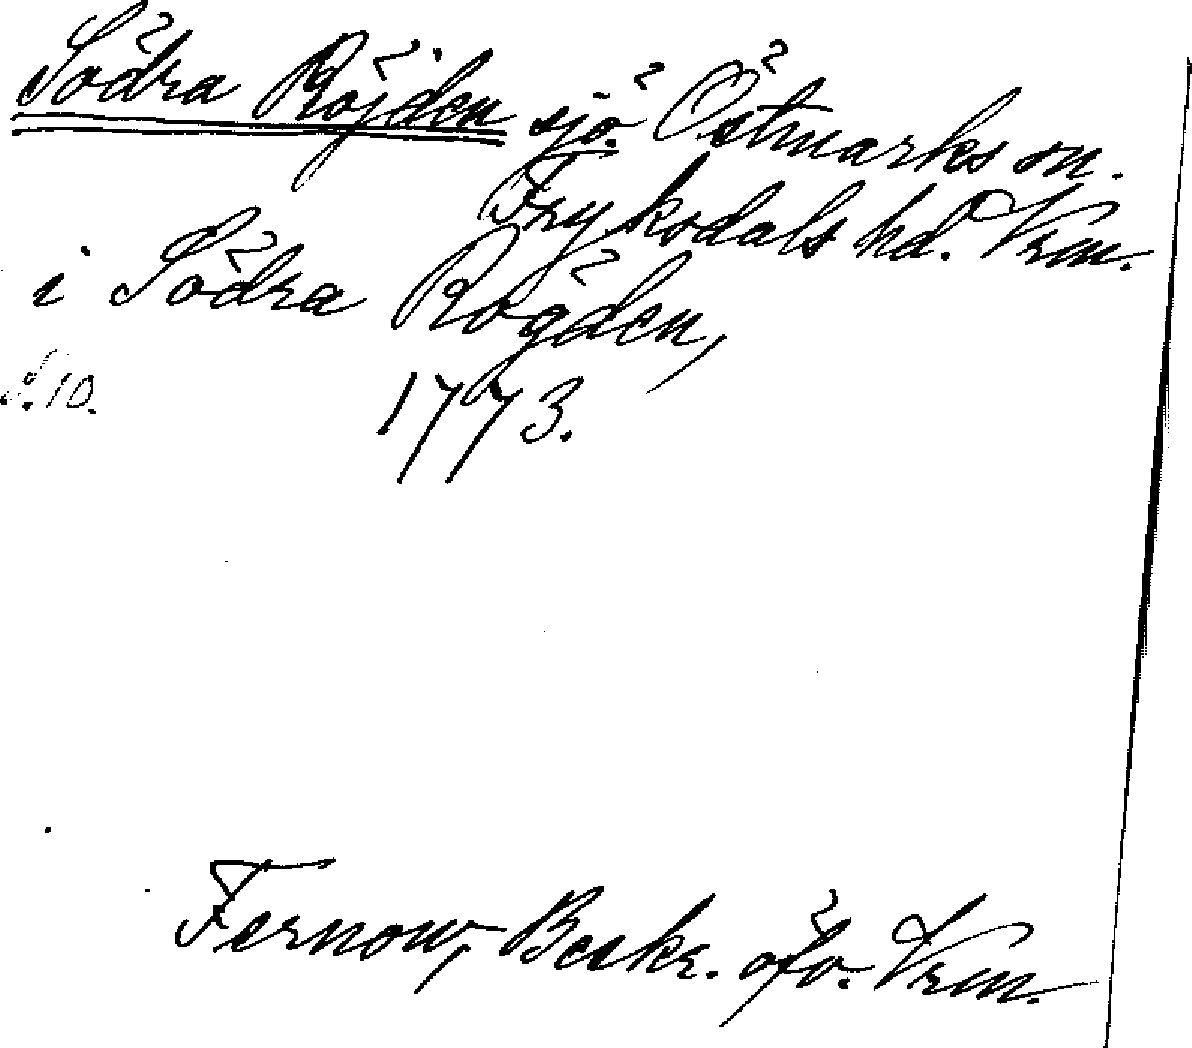 Södra Röjden sjö Östmarks sn.
Fryksdals hd. Vrm.
i Södra Rögden,
S. 10.
1773.
Fernow, Beskr. öfv. Vrm.